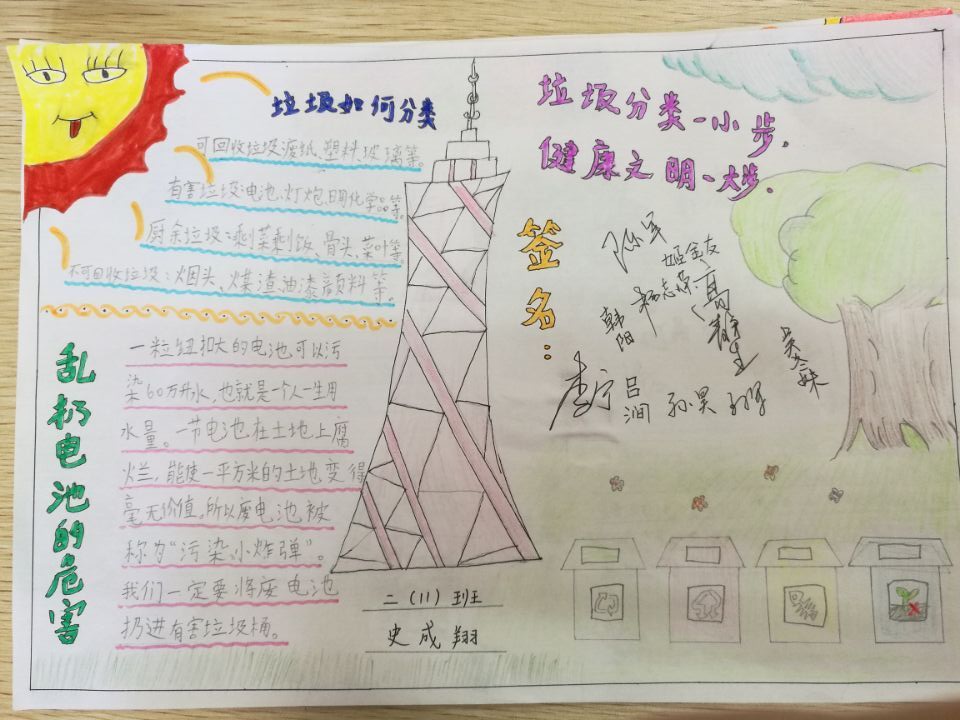 垃圾如何分类
可回收垃圾:废纸、塑料、玻璃等。
有害垃圾:电池、灯炮、日用化学品等。
厨余垃圾:剩菜剩饭、骨头、菜叶等。
不可回收垃圾:烟头、煤渣、油漆颜料等。
乱扔电池的危害
一粒钮扣大的电池可以污
染60万升水,也就是一个人一生用
水量。一节电池在土地上腐
烂,能使一平方米的土地变得
毫无价值。所以废电池被
称为“污染小炸弹”。
我们一定要将废电池
扔进有害垃圾桶。
二(11)班
史成翔
垃圾分类一小步,
健康文明一大步.
签名:
陈军
姬金友
韩阳
杨志荣
李宁
吕涧
孙昊